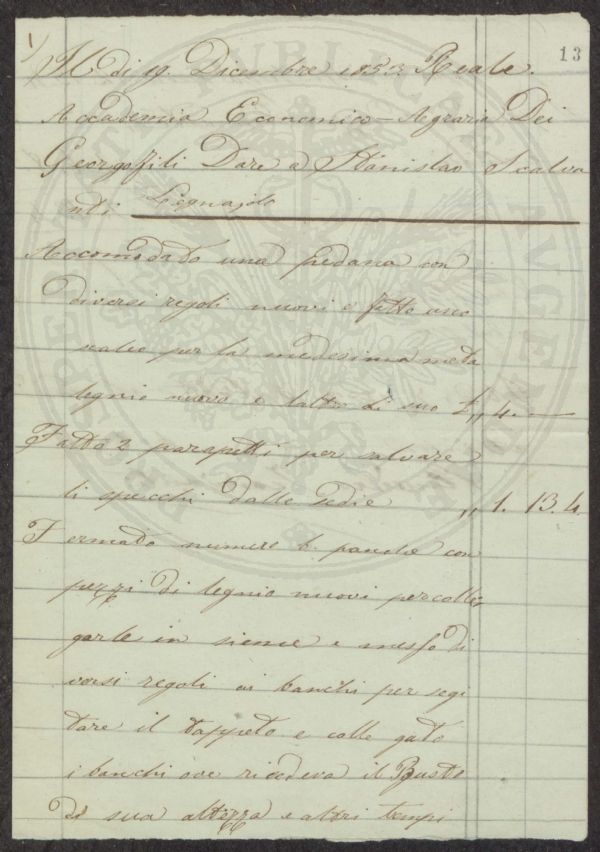 1) 13
Al dì 19. Dicembre 1853 Reale.
Accademia Economico-Agraria Dei
Georgofili Dare a Stanislao Scalva
nti Legnajolo
Accomodato una pedana con
diversi regoli nuovi e fatto uno
scaleo per la medesima metà
legnio nuovo e laltro di suo £,, 4. —
Fatto 2 parapetti per salvare
li specchi dalle Sedie ,, 1. 13. 4.
Fermato numero 6. panche con
pezzi di legnio nuovi per colle,
garle in sieme e messo di
versi regoli ai banchi per segi
tare il tappeto e colle gato
i banchi ove risedeva il Busto
di sua altezza e altri tempi